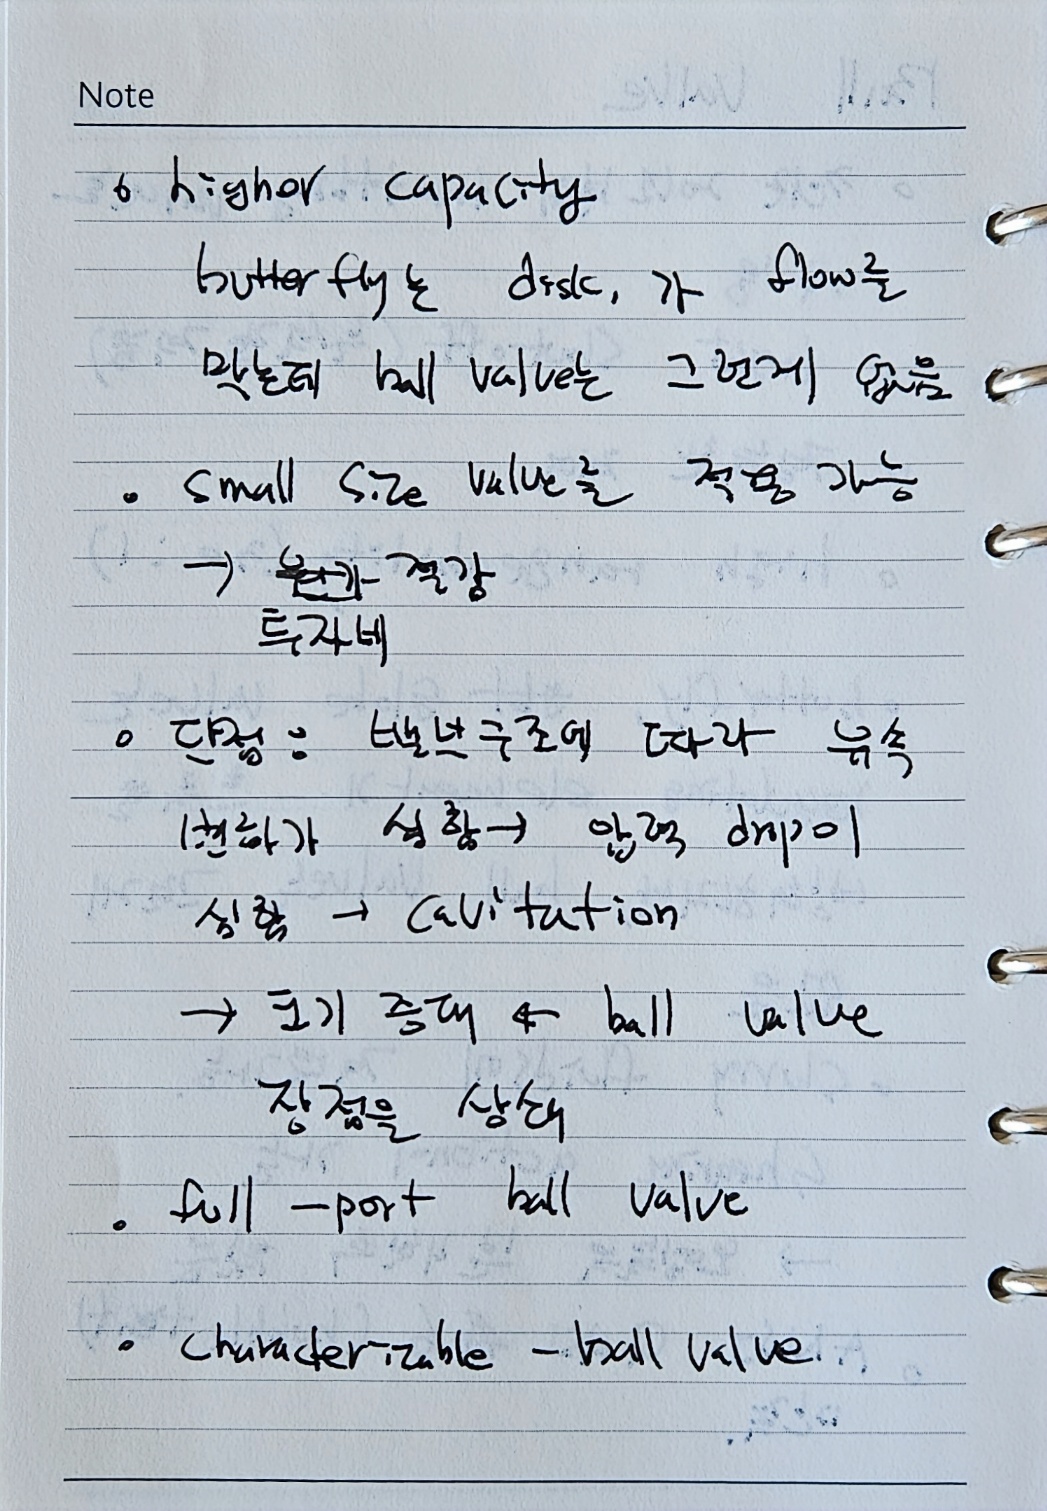 Note
• higher capacity
butterfly는 disk, 가 flow를
막는데 ball valve는 그런게 없음
• small size valve를 적용 가능
→ 절감
투자비
• 단점 : 밸브구조에 따라 유속
변화가 심함 → 압력 drop이
심함 → cavitation
→ 크기 증대 ← ball valve
장점을 상쇄
• full - port ball valve
• characterizable - ball valve.